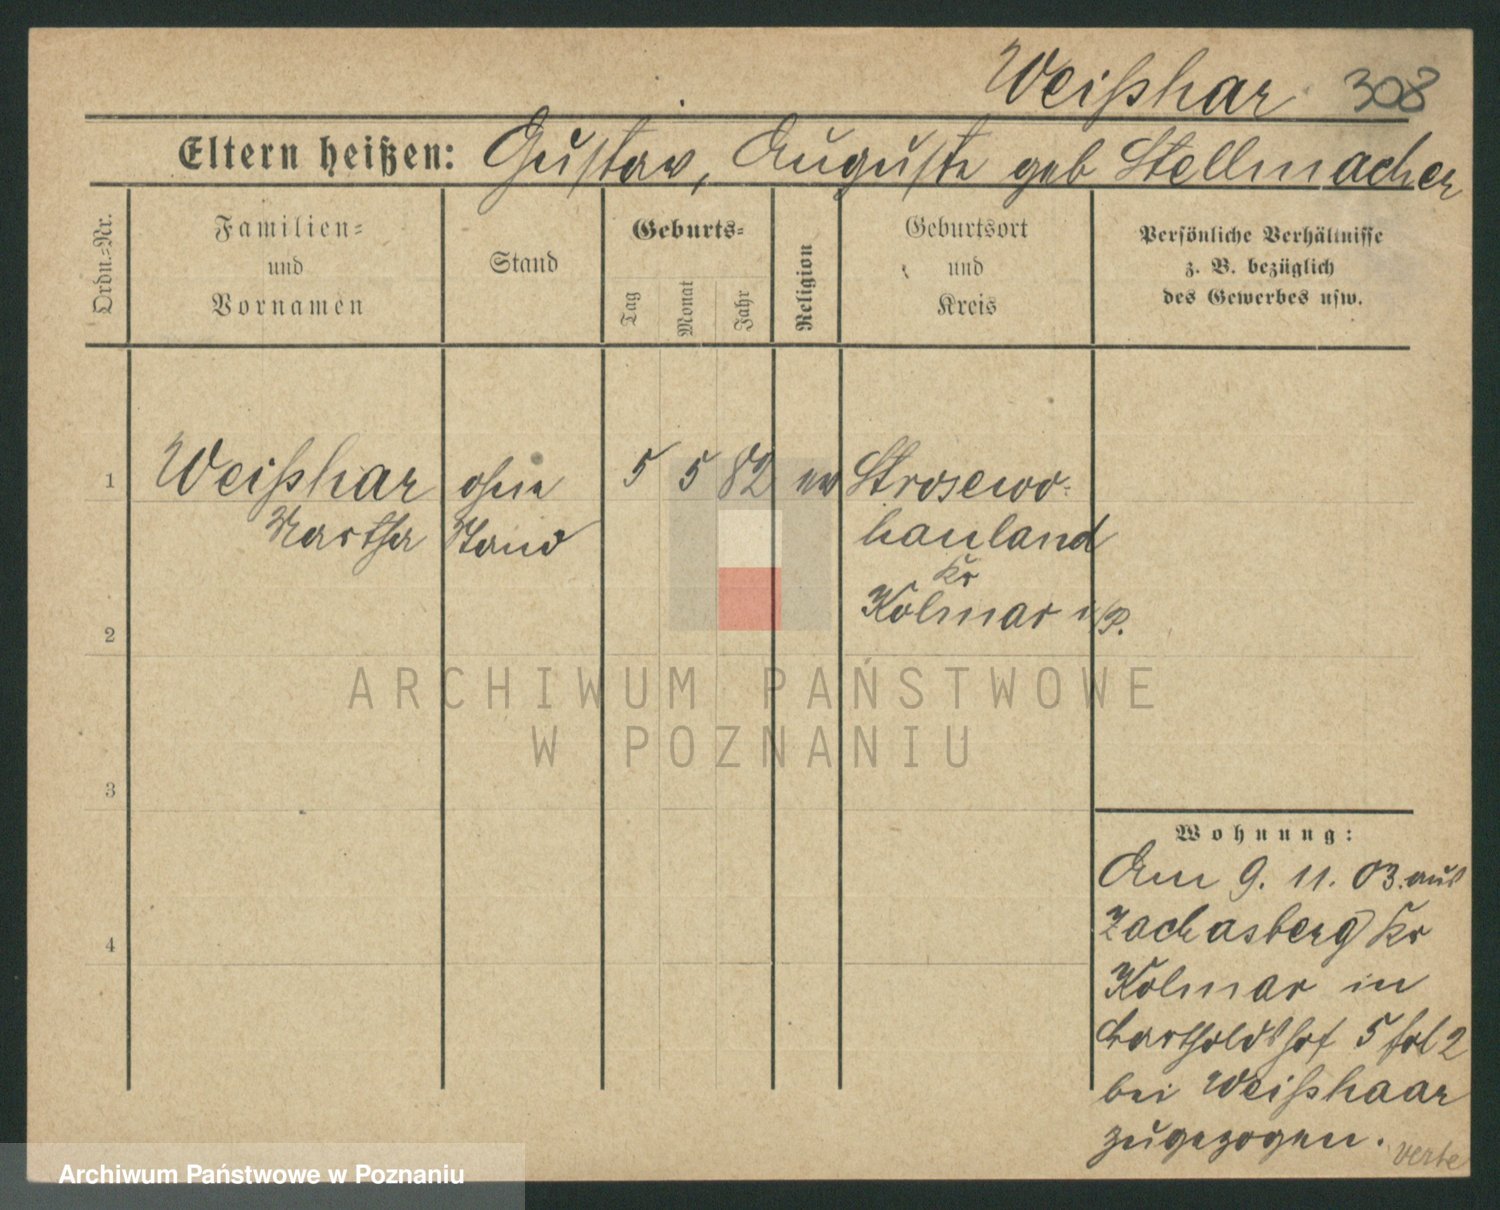 Weißhar 308
Eltern heißen: Gustav, Auguste geb Stellmacher
Ordn.-Nr.
Familien-
und
Vornamen
Stand
Geburts-
Tag
Monat
Jahr
Religion
Geburtsort
und
Kreis
Persönliche Verhältnisse
z. B. bezüglich
des Gewerbes usw.
1 Weißhar ohne 5 5 82 ev Strosewo-
Martha Stand hauland
Kr
Kolmar i/P.
2
ARCHIWUM PAŃSTWOWE
W POZNANIU
3
Wohnung:
Am 9. 11. 03. aus
Zachasberg Kr
4
Kolmar in
Bartholdshof 5 fol 2
bei Weißhaar
zugezogen.
verte
Archiwum Państwowe w Poznaniu